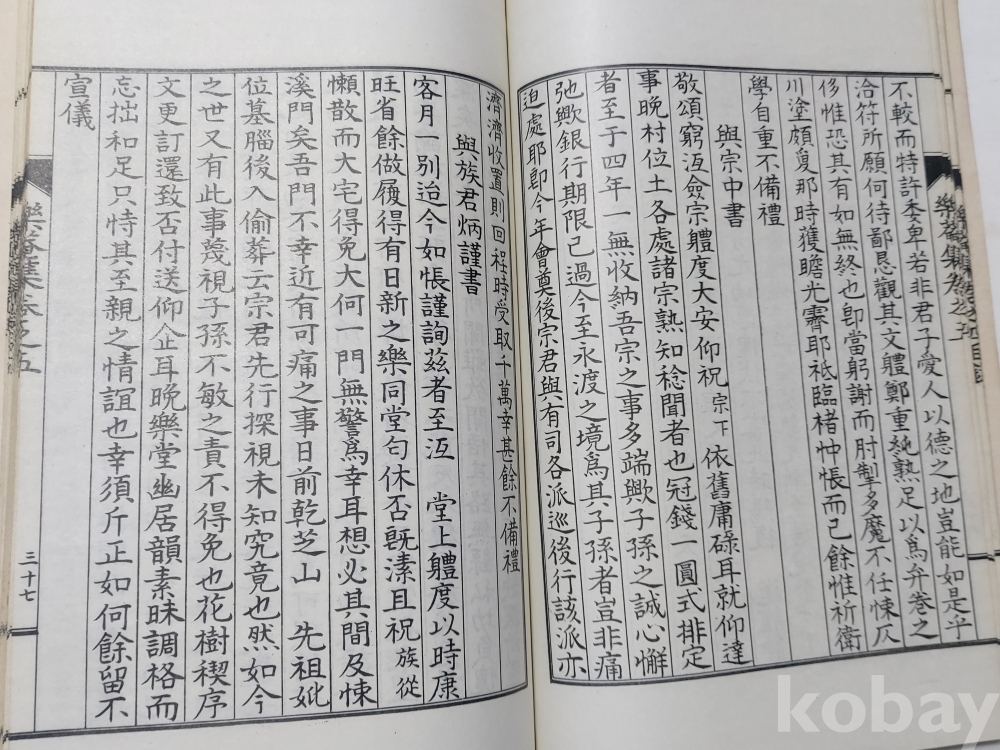 不較而特許委卑若非君子愛人以德之地豈能如是乎
洽符所願何待鄙恳觀其文軆鄭重純熟足以爲弁卷之
侈惟恐其有如無終也卽當躬謝而肘掣多魔不任悚仄
川塗頗夐那時獲瞻光霽耶祗臨楮忡悵而已餘惟祈衛
學自重不備禮
與宗中書
敬頌窮沍僉宗軆度大安仰祝宗下依舊庸碌耳就仰達
事晚村位土各處諸宗熟知稔聞者也冠錢一圓式排定
者至于四年一無收納吾宗之事多端歟子孫之誠心懈
弛歟銀行期限已過今至永渡之境爲其子孫者豈非痛
迫處耶卽今年會奠後宗君與有司各派巡後行該派亦
濟濟收置則回程時受取千萬幸甚餘不備禮
與族君炳謹書
客月一別迨今如悵謹詢玆者至沍 堂上軆度以時康
旺省餘做履得有日新之樂同堂勻休否旣溸且祝族從
懶散而大宅得免大何一門無警爲幸耳想必其間及悚
溪門矣吾門不幸近有可痛之事日前乾芝山 先祖妣
位墓腦後入偷葬云宗君先行探視未知究竟也然如今
之世又有此事蔑視子孫不敏之責不得免也花樹稧序
文更訂還致否付送仰企耳晚樂堂幽居韻素昧調格而
忘拙和足只恃其至親之情誼也幸須斤正如何餘留不
宣儀
集卷之五
三十七
kobay